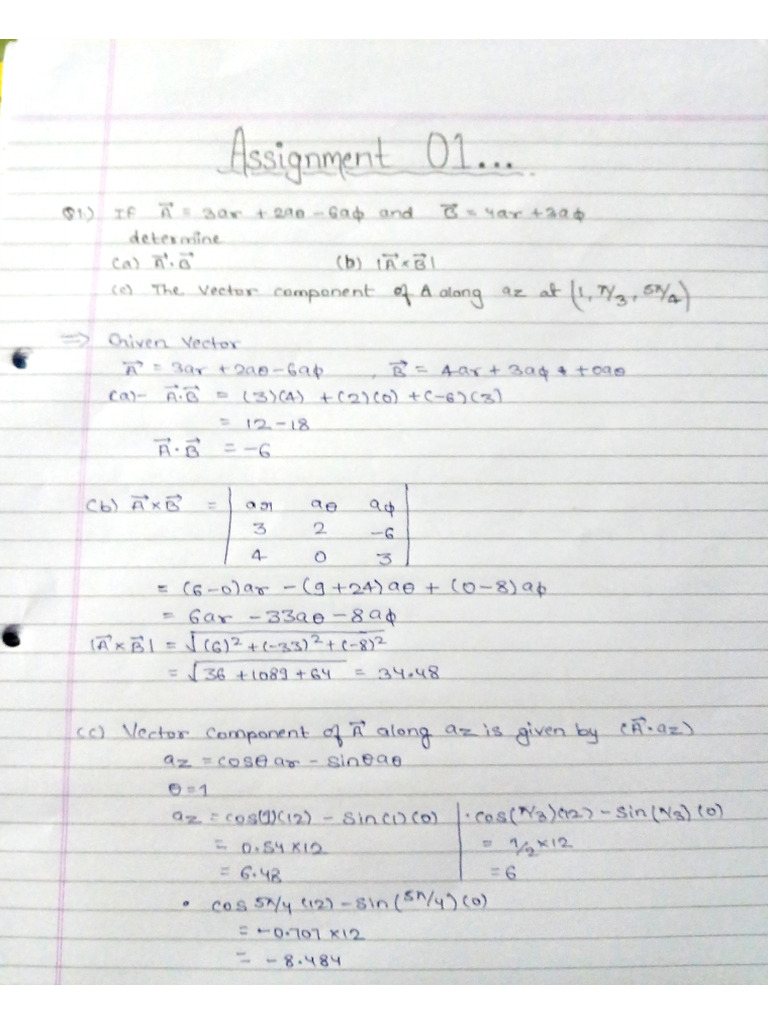 Assignment 01...
Q1.) If A⃗ = 3ar + 2aθ - 6aϕ and B⃗ = 4ar + 3aϕ
determine
(a) A⃗.B⃗ (b) |A⃗ × B⃗|
(c) The vector component of A along az at (1, π/3, 5π/4)
=> Given Vector
A⃗ = 3ar + 2aθ - 6aϕ , B⃗ = 4ar + 3aϕ + 0aθ
(a)- A⃗.B⃗ = (3)(4) + (2)(0) + (-6)(3)
= 12 - 18
A⃗.B⃗ = -6
(b) A⃗×B⃗ = | ar aθ aϕ |
| 3 2 -6 |
| 4 0 3 |
= (6-0)ar - (9+24)aθ + (0-8)aϕ
= 6ar - 33aθ - 8aϕ
|A⃗×B⃗| = √(6)² + (-33)² + (-8)²
= √36 + 1089 + 64 = 34.48
(c) Vector component of A⃗ along az is given by (A⃗.az)
az = cosθ ar - sinθ aθ
θ = 1
az = cos(1)(12) - sin(1)(0) | • cos(π/3)(12) - sin(π/3)(0)
= 0.54 × 12 | = 1/2 × 12
= 6.48 | = 6
• cos 5π/4 (12) - sin(5π/4)(0)
= -0.707 × 12
= -8.484